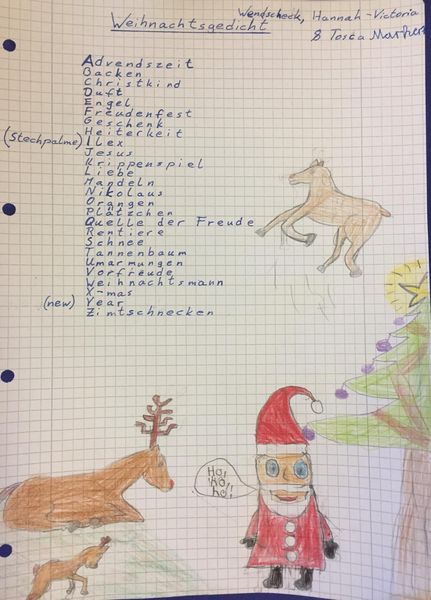 Weihnachtsgedicht
Wendscheck, Hannah-Victoria
& Tosca
Advendszeit
Backen
Christkind
Duft
Engel
Freudenfest
Geschenk
Heiterkeit
(Stechpalme) Ilex
Jesus
Krippenspiel
Liebe
Mandeln
Nikolaus
Orangen
Plätzchen
Quelle der Freude
Rentiere
Schnee
Tannenbaum
Umarmungen
Vorfreude
Weihnachtsmann
X-mas
(new) Year
Zimtschnecken
Ho,
ho,
ho!